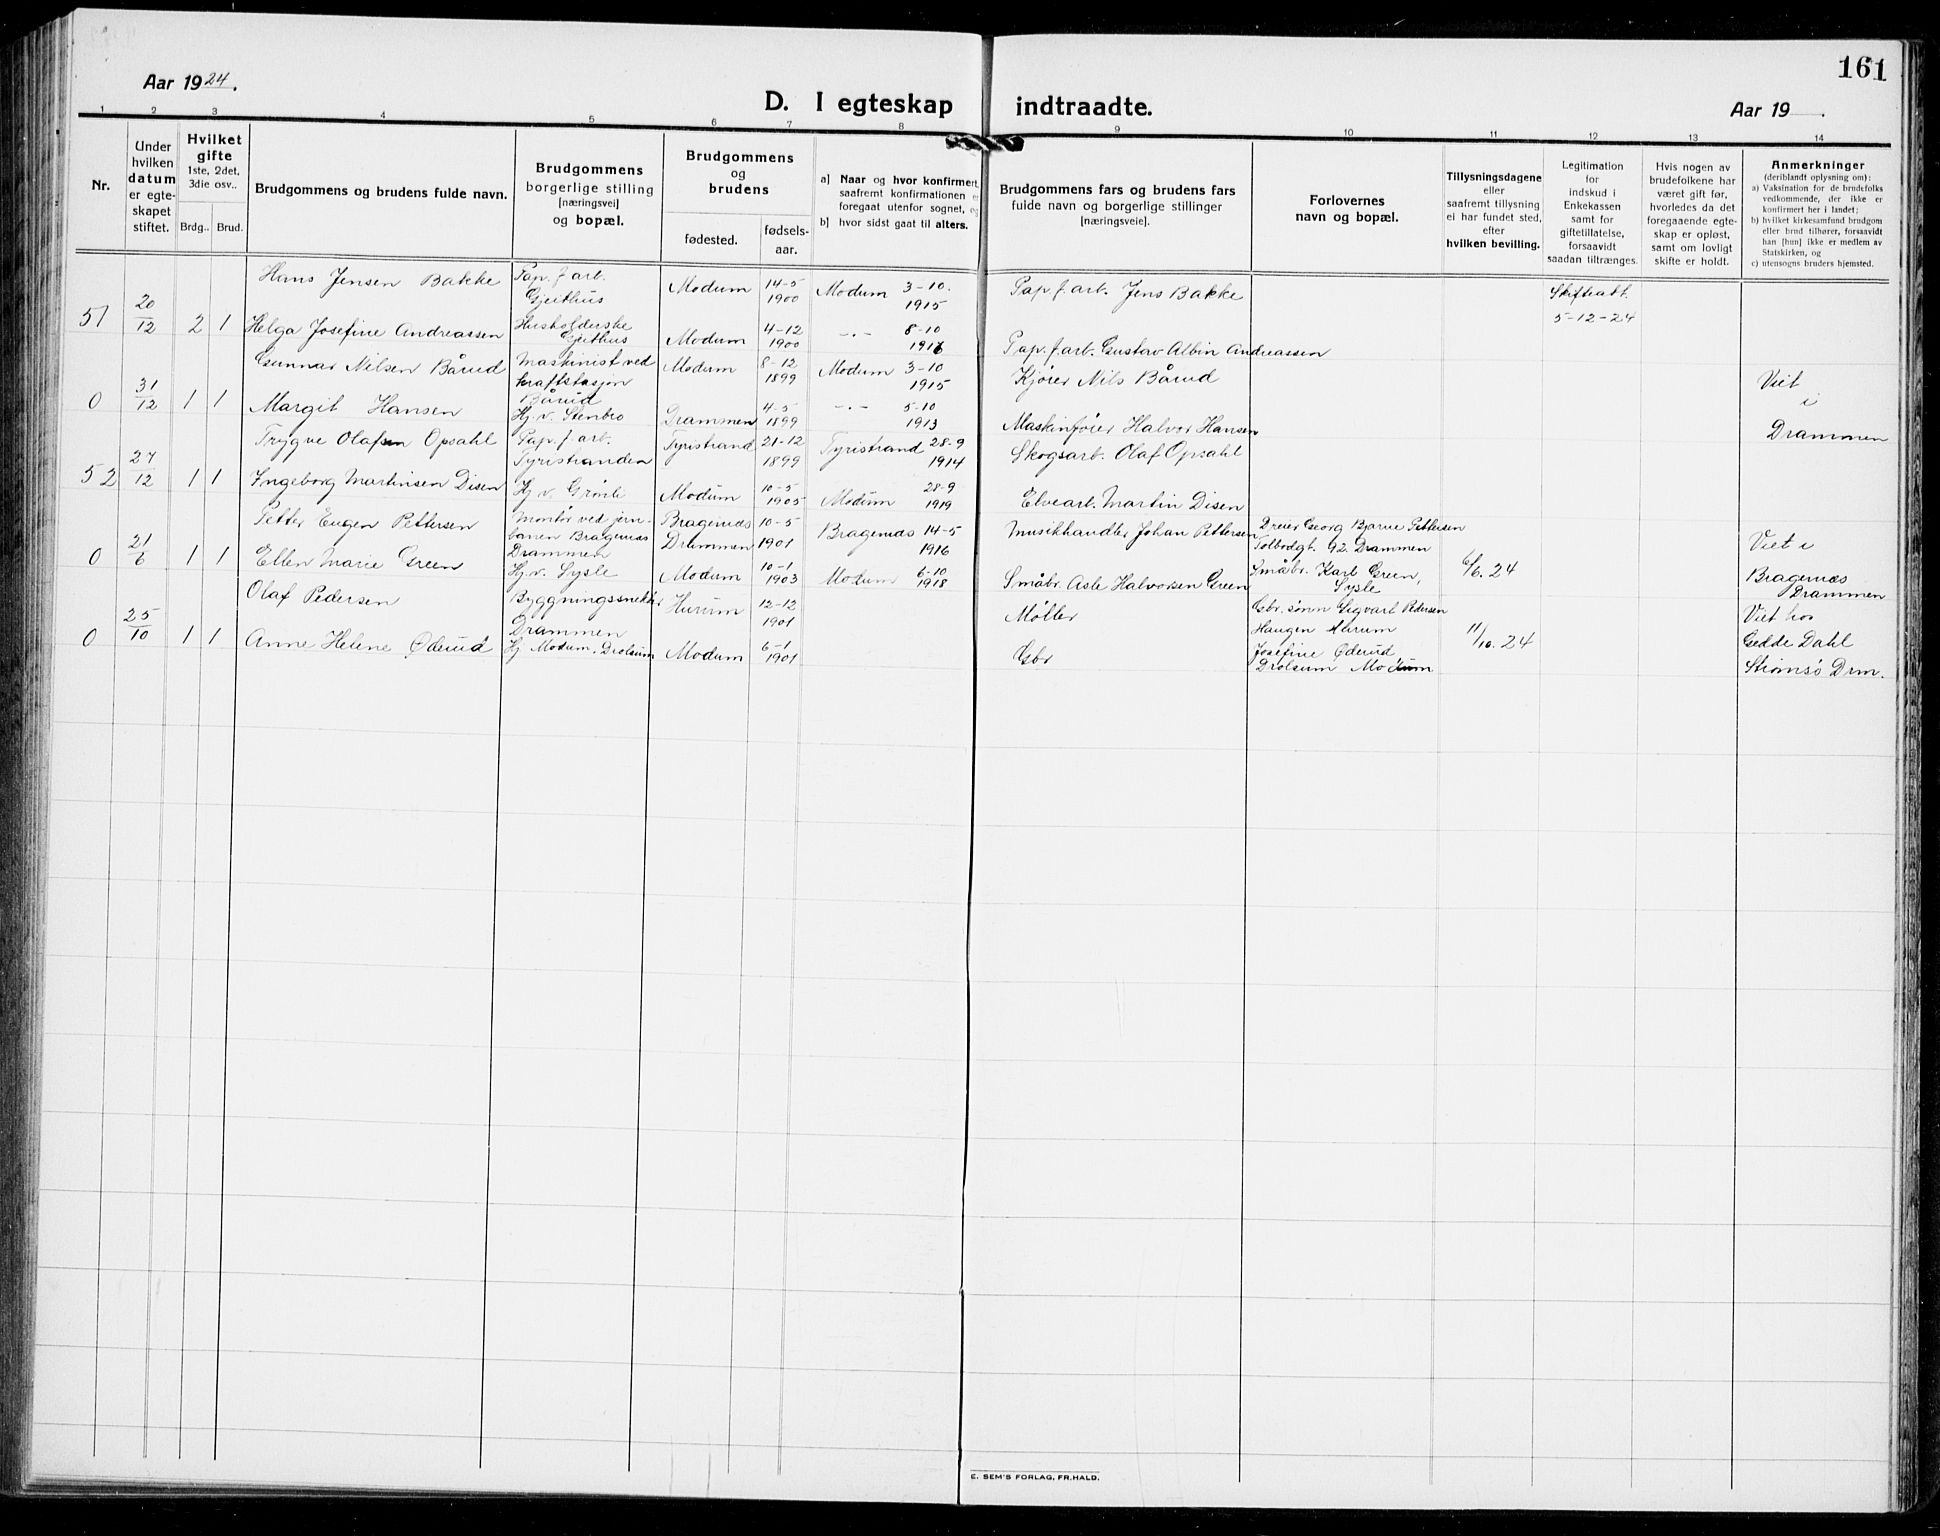 161
Aar 1924.
D. I egteskap indtraadte.
Aar 19 .
1 2 3 4 5 6 7 8 9 10 11 12 13 14
Nr.
Under
hvilken
datum
er egte-
skapet
stiftet.
Hvilket
gifte
1ste, 2det,
3die osv..
Brdg.. Brud.
Brudgommens og brudens fulde navn.
Brudgommens
borgerlige stilling
[næringsvei]
og bopæl.
Brudgommens
og
brudens
fødested.
fødsels-
aar.
a] Naar og hvor konfirmert,
saafremt konfirmationen er
foregaat utenfor sognet, og
b] hvor sidst gaat til alters.
Brudgommens fars og brudens fars
fulde navn og borgerlige stillinger
[næringsveie].
Forlovernes
navn og bopæl.
Tillysningsdagene
eller
saafremt tillysning
ei har fundet sted,
efter
hvilken bevilling.
Legitimation
for
indskud i
Enkekassen
samt for
giftetillatelse,
forsaavidt
saadan tiltrænges.
Hvis nogen av
brudefolkene har
været gift før,
hvorledes da det
foregaaende egte-
skap er opløst,
samt om lovligt
skifte er holdt.
Anmerkninger
(deriblandt oplysning om):
a) Vaksination for de brudefolks
vedkommende, der ikke er
konfirmert her i landet;
b) hvilket kirkesamfund brudgom
eller brud tilhører, forsaavidt
han [hun] ikke er medlem av
Statskirken, og
c) utensogns bruders hjemsted.
51 20/12 2 1
Hans Jensen Bakke
Pap. f. arb.
Gjeithus
Modum 14-5
1900
Modum 3-10.
1915
Pap. f. arb. Jens Bakke
Skifteatt.
5-12-24
Helga Josefine Andreassen
Husholderske
Gjeithus
Modum 4-12
1900
-.- 8-10
1916
Pap. f. arb. Gustav Albin Andreassen
0 31/12 1 1
Gunnar Nilsen Bårud
Maskinist ved
kraftstasjon
Bårud
Modum 8-12
1899
Modum 3-10
1915
Kjører Nils Bårud
Viet
i
Drammen
Margit Hansen
Hj. v. Stenbro
Drammen 4-5
1899
-.- 5-10
1913
Maskinfører Halvor Hansen
52 27/12 1 1
Trygve Olafsen Opsahl
Pap. f. arb.
Tyristranden
Tyristrand 21-12
1899
Tyristrand 28-9
1914
Skogsarb. Olaf Opsahl
Ingeborg Martinsen Disen
Hj. v. Grønli
Modum 10-5
1905
Modum 28-9
1919
Elvearb. Martin Disen
0 21/6 1 1
Petter Eugen Pettersen
Montør ved jern-
banen Bragernæs
Drammen
Bragernæs
Drammen
10-5
1901
Bragernæs 14-5
1916
Musikhandler Johan Pettersen
Dreier Georg Bjarne Pettersen
Tolbodgt. 92. Drammen
6/6. 24
Viet i
Bragernæs
Drammen
Ellen Marie Green
Hj. v. Sysle
Modum 10-1
1903
Modum 6-10
1918
Småbr. Asle Halvorsen Green
Småbr. Karl Green,
Sysle
0 25/10 1 1
Olaf Pedersen
Byggningssnekker
Drammen
Hurum 12-12
1901
Møller
Gbr. sønn Sigvart Pedersen
Haugen Hurum
11/10. 24
Viet hos
Gedde Dahl
Strømsø Drm.
Anne Helene Øderud
Hj. Modum. Drolsum
Modum 6-1
1901
Gbr
Josefine Øderud
Drolsum Modum
E. SEM'S FORLAG, FR.HALD.